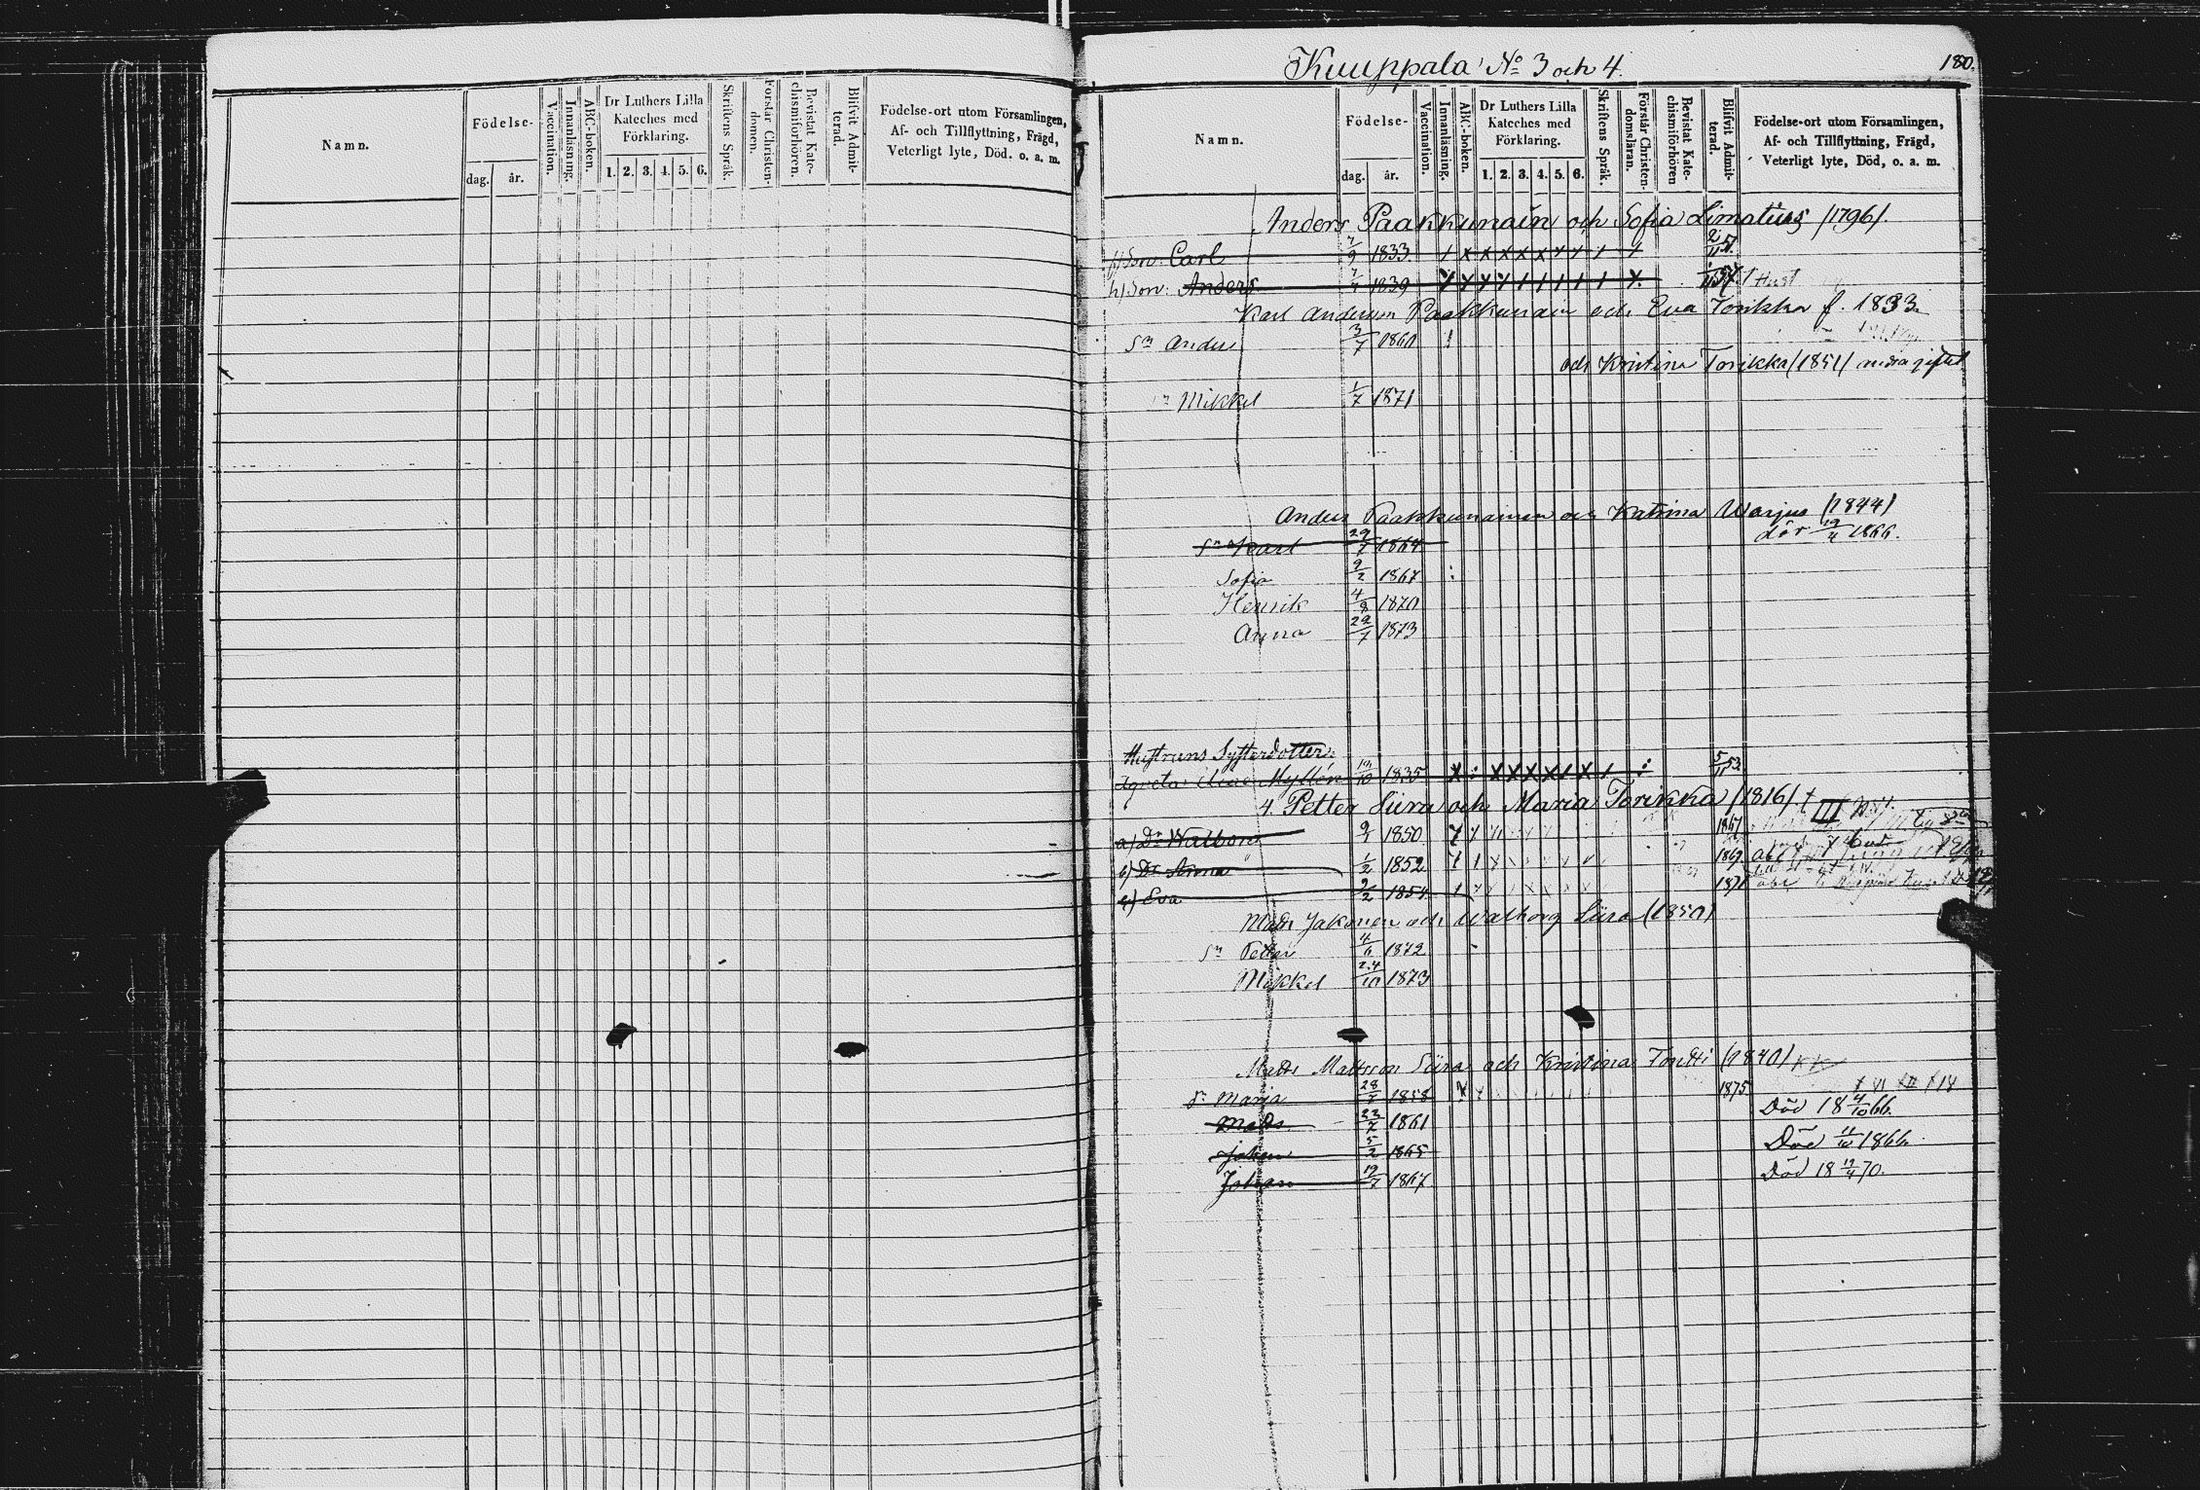 Namn.
Födelse-
dag.
år.
Vaccination.
Innanläsning.
ABC-boken.
Dr Luthers Lilla
Kateches med
Förklaring.
1. 2. 3. 4. 5. 6.
Skriftens Språk.
Förstår Christen-
domen.
Bevistat Kate-
chismiförhören.
Blifvit Admit-
terad.
Födelse-ort utom Församlingen,
Af- och Tillflyttning, Frägd,
Veterligt lyte, Död. o. a. m.
Kuuppala No 3 och 4.
180.
Namn.
Födelse-
dag.
år.
Vaccination.
Innanläsning.
ABC-boken.
Dr Luthers Lilla
Kateches med
Förklaring.
1. 2. 3. 4. 5. 6.
Skriftens Språk.
Förstår Christen-
domsläran.
Bevistat Kate-
chismiförhören
Blifvit Admit-
terad.
Födelse-ort utom Församlingen,
Af- och Tillflyttning, Frägd,
Veterligt lyte, Död, o. a. m.
Anders Paakkunain och Sofia Limatius /1796/.
Son. Carl 7/9 1833
h) Son. Anders 1839
Karl Andersson Paakkunain och Eva Torikka f. 1833.
Sn Anders 3/7 1860
och Kristina Torikka (1851) andra giftet
Mikkel 1/7 1871
Anders Paakkunainen och Katrina Warjus (1844)
Sn Karl 29/7 1864 dör 19/4 1866.
Sofia 9/2 1867
Henrik 4/8 1870
Anna 22/7 1873
Hustruns Systerdotter:
1835 5/11 53
4. Petter Siira och Maria Torikka /1816/ † III
a) Dr Walborg 1850 1867
b) Dr Anna 1/2 1852 1869
c) Eva 9/2 1854 1871
Mats Jakonen och Walborg Siira (1850)
Sn Petter 4/6 1872
Mikkel 24/10 1873
Mats Mattsson Siira och Kristina Tontti (1840)
dr Maria 1858 1875
Mats 23/7 1861 Död 18 4/10 66.
Johan 5/2 1865 Död 11/10 1866.
Johan 19/7 1867 Död 18 19/4 70.